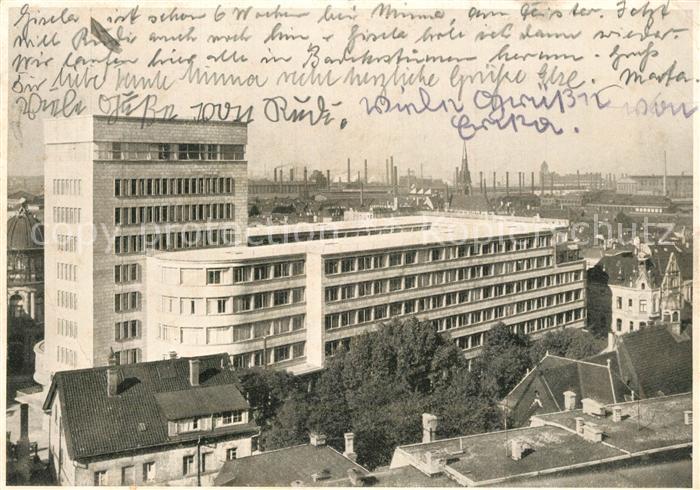 Gisela ist schon 6 Wochen bei Minna, am Fenster. Jetzt
will Rudi auch noch hin. Gisela hole ich dann wieder.
wir laufen hier alle in Badekostümen herum. Gruß
Dir liebe Tante Minna recht herzliche Grüße Else. Marta
Viele Grüße von Rudi. Viele Grüße von
Erika.
copy protection Kopierschutz